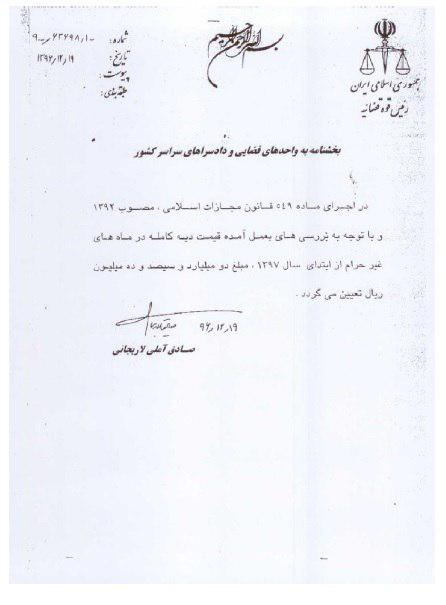 بسم الله الرحمن الرحیم
جمهوری اسلامی ایران
رئیس قوه قضائیه
شماره:
تاریخ: ۱۳۹۶/۱۲/۱۹
پیوست:
طبقه بندی:
بخشنامه به واحدهای قضایی و دادسراهای سراسر کشور
در اجرای ماده ۵۴۹ قانون مجازات اسلامی ، مصوب ۱۳۹۲
و با توجه به بررسی های بعمل آمده قیمت دیه کامله در ماه های
غیر حرام از ابتدای سال ۱۳۹۷ ، مبلغ دو میلیارد و سیصد و ده میلیون
ریال تعیین می گردد .
۹۶/۱۲/۱۹
صادق آملی لاریجانی